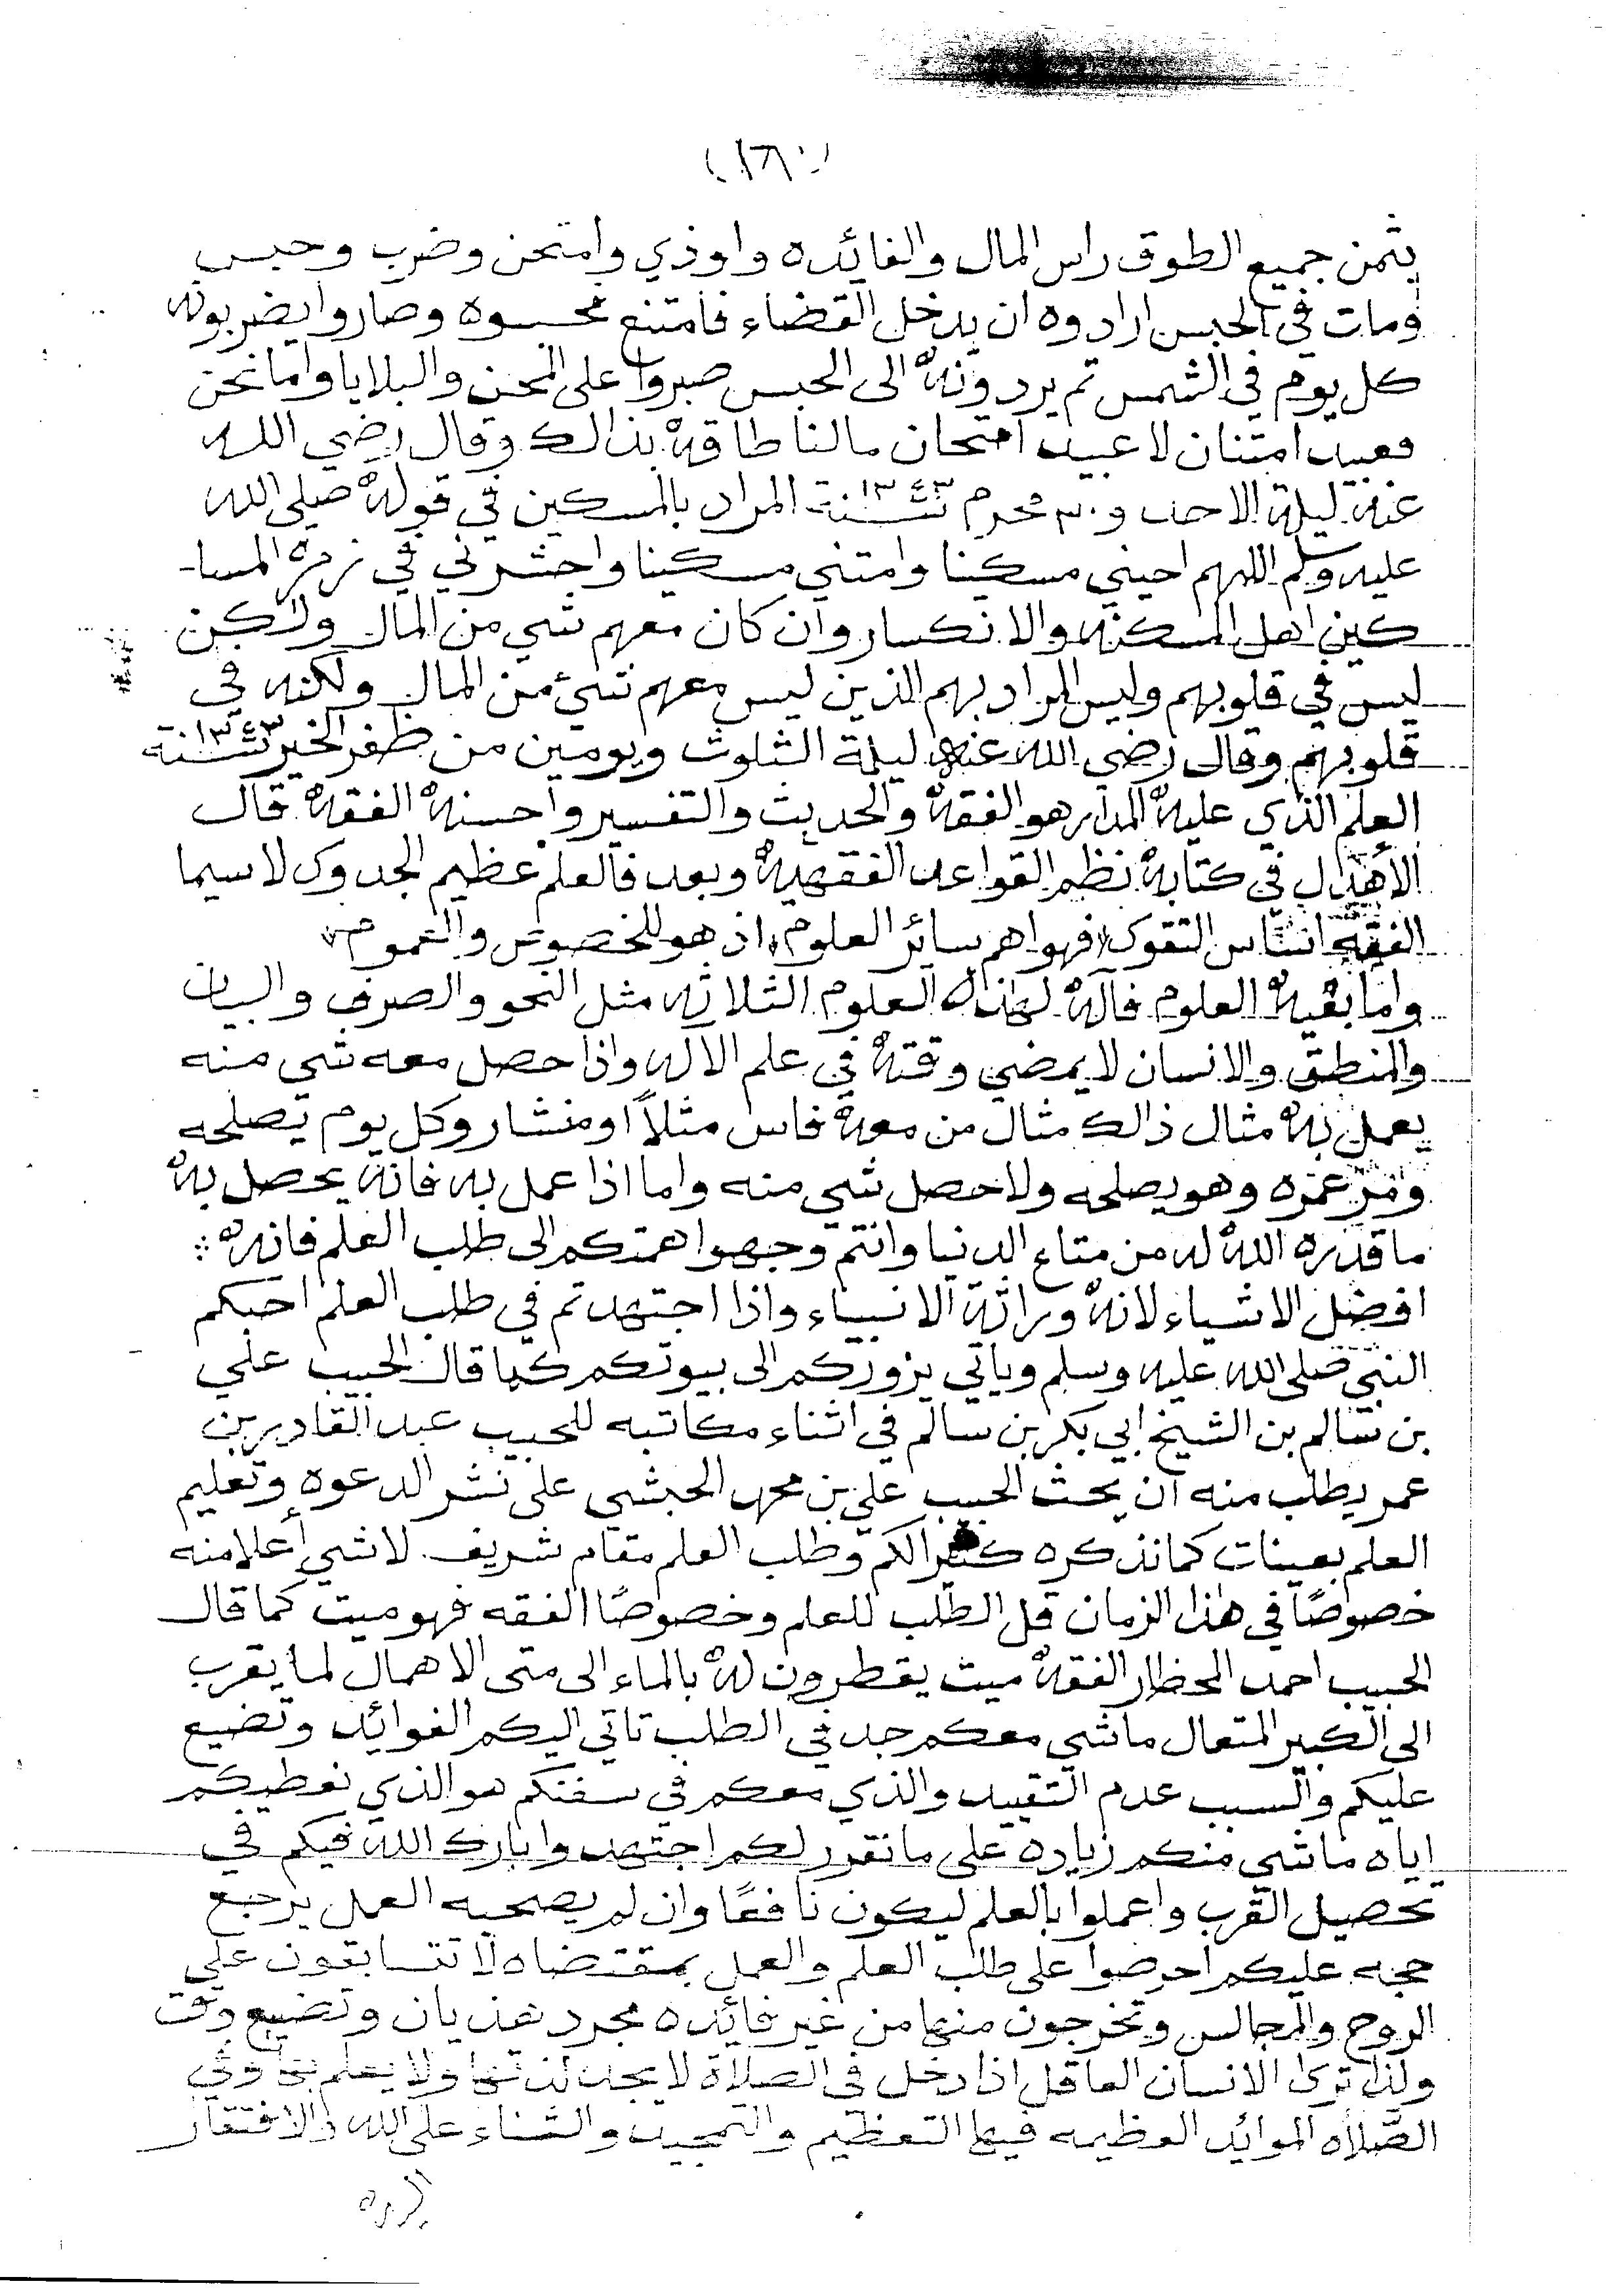 (١٦٨٠)
بثمن جميع الطوق راس المال والفائده واوذي وامتحن وضرب وحبس
ومات في الحبس ارادوه ان يدخل القضاء فامتنع فحبسوه وصاروا يضربونه
كل يوم في الشمس ثم يردونه الى الحبس صبروا على المحن والبلايا واما نحن
فعبيد امتنان لا عبيد امتحان مالنا طاقه بذالك وقال رضي الله
عنه ليلة الاحد و ٣٠ محرم سنة ١٣٤٣ المراد بالمسكين في قوله صلى الله
عليه وسلم اللهم احيني مسكينا وامتني مسكينا واحشرني في زمرة المسا
كين اهل المسكنه والانكسار وان كان معهم شي من المال ولاكن
ليس في قلوبهم وليس المراد بهم الذين ليس معهم شيء من المال ولكنه في
قلوبهم وقال رضي الله عنه ليلة الثلوث ويومين من ظفر الخير سنة ١٣٤٣
العلم الذي عليه المدار هو الفقه والحديث والتفسير واحسنه الفقه قال
الأهدال في كتابه نظم القواعد الفقهيه وبعد فالعلم عظيم الجدوى لاسيما
الفقه اساس التقوى فهو اهم سائر العلوم اذ هو للخصوص والعموم
واما بقية العلوم فآله لهذه العلوم الثلاثه مثل النحو والصرف والبيان
والمنطق والانسان لا يمضي وقته في علم الاله واذا حصل معه شي منه
يعمل به مثال ذالك مثال من معه فاس مثلاً او منشار وكل يوم يصلحه
ومر عمره وهو يصلحه ولا حصل شي منه واما اذا عمل به فانه يحصل به
ما قدره الله له من متاع الدنيا وانتم وجهوا همتكم الى طلب العلم فانه
افضل الاشياء لانه وراثة الانبياء واذا اجتهدتم في طلب العلم احبكم
النبي صلى الله عليه وسلم وياتي يزوركم الى بيوتكم كما قال الحبيب علي
بن سالم بن الشيخ ابي بكر بن سالم في اثناء مكاتبه للحبيب عبد القادر بن
عمر يطلب منه ان يحث الحبيب علي بن محمد الحبشي على نشر الدعوه وتعليم
العلم بعينات كما نذكره لكم وطلب العلم مقام شريف لا شي أعلا منه
خصوصًا في هذا الزمان قل الطلب للعلم وخصوصًا الفقه فهو ميت كما قال
الحبيب احمد المحظار الفقه ميت يقطرون له بالماء الى متى الاهمال لما يقرب
الى الكبير المتعال ماشي معكم جد في الطلب تاتي اليكم الفوائد وتضيع
عليكم والسبب عدم التقييد والذي معكم في سفنكم هو الذي نعطيكم
اياه ماشي منكم زياده على ما نقرر لكم اجتهدوا بارك الله فيكم في
تحصيل القرب واعملوا بالعلم ليكون نافعًا وان لم يصحبه العمل يرجع
حجه عليكم احرصوا على طلب العلم والعمل بمقتضاه لا تتسابقون على
الروح والمجالس وتخرجون منها من غير فائده مجرد هذيان وتضييع وقت
ولذا ترى الانسان العاقل اذا دخل في الصلاة لا يجد لذتها ولا يعلم بها وفي
الصلاه الموائد العظيمه فيها التعظيم والتمجيد والثناء على الله والافتقار